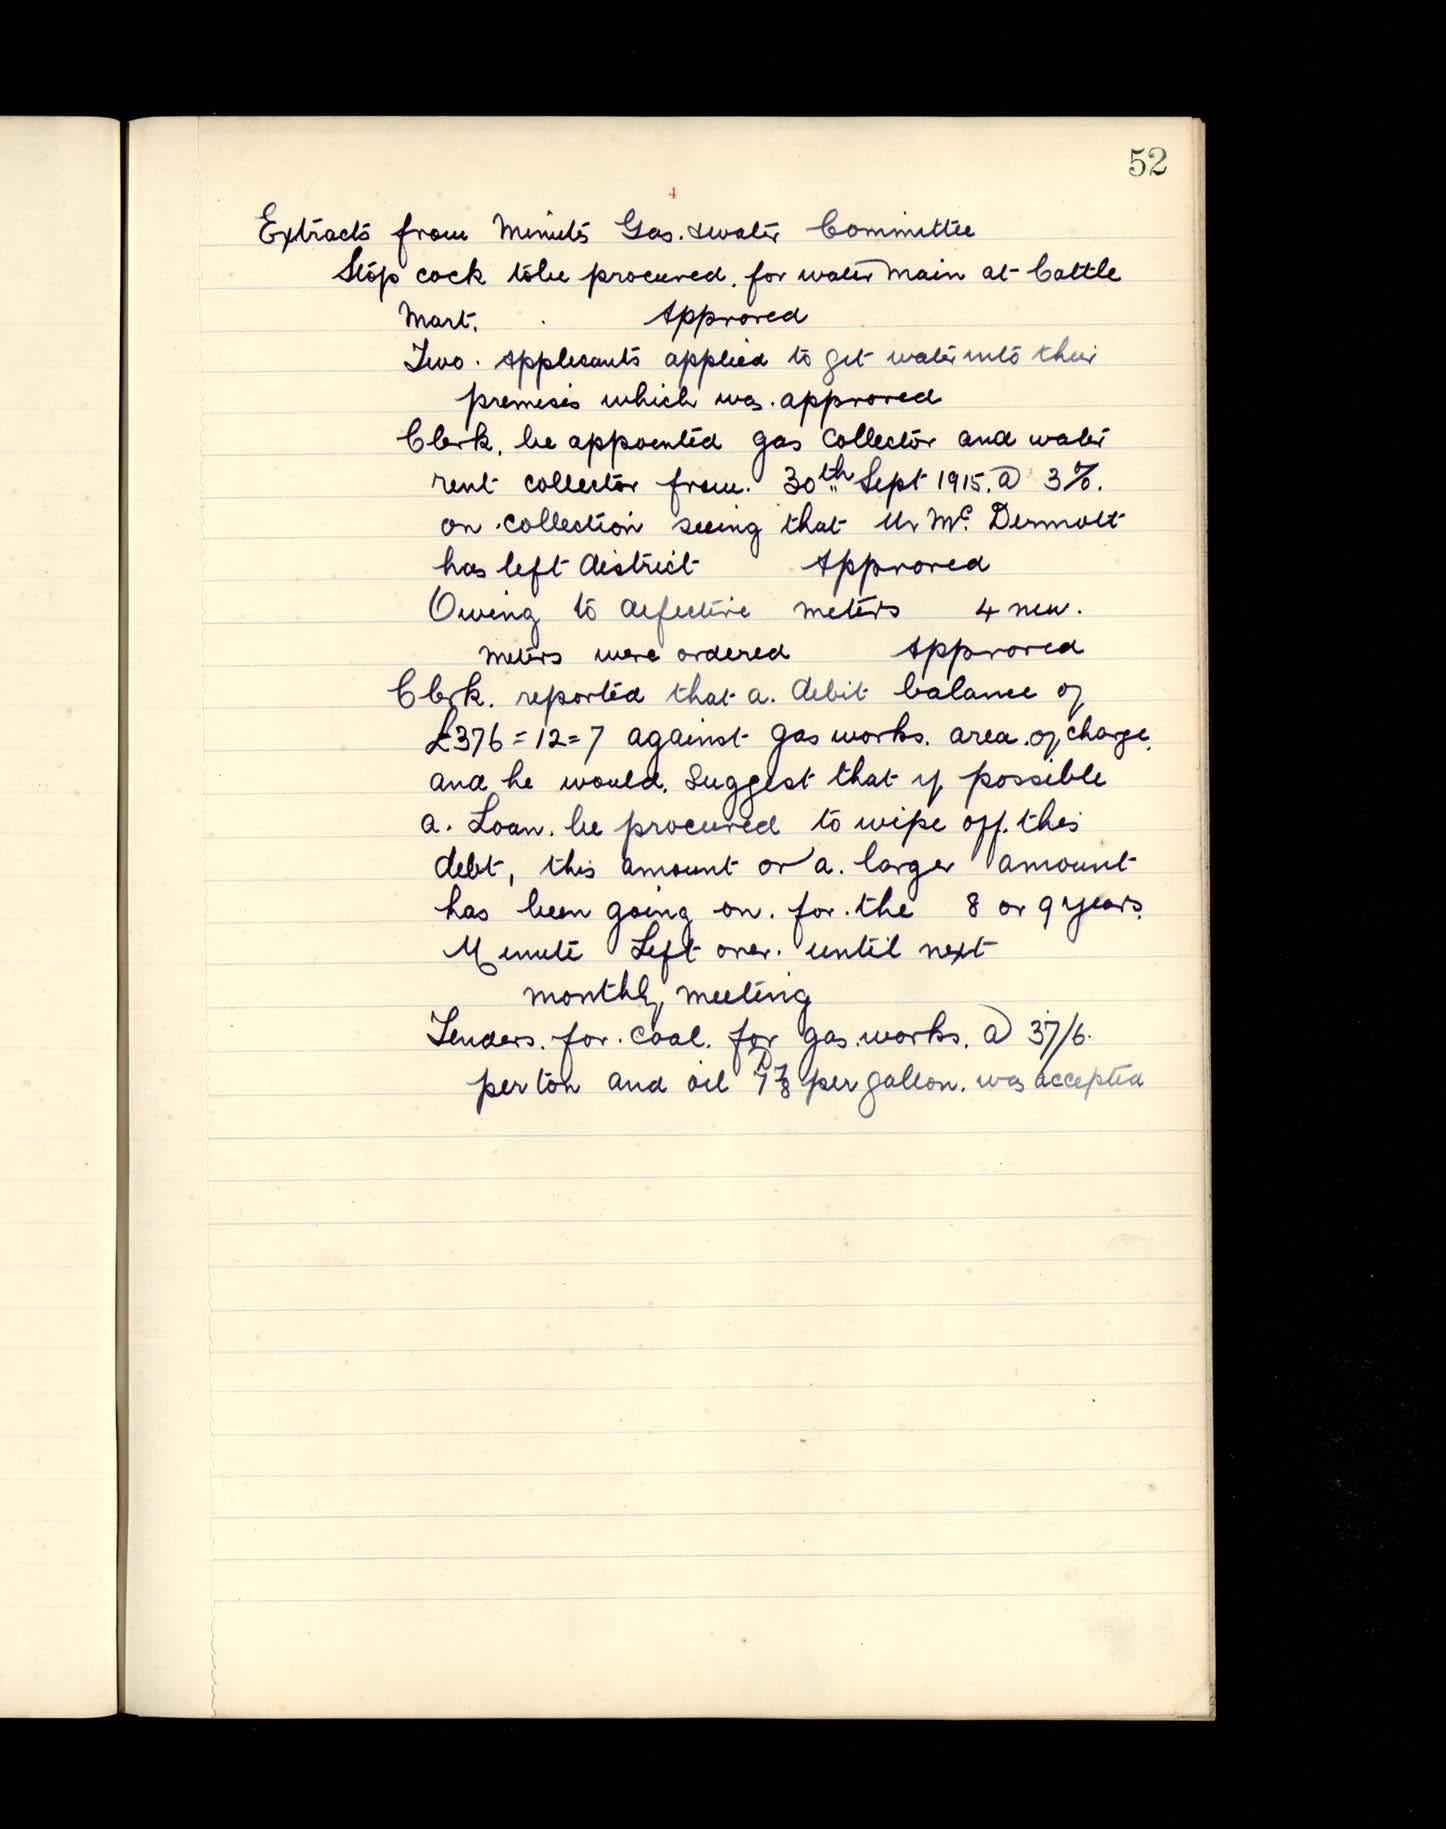 52
4
Extracts from Minutes Gas. & water Committee
Stop cock to be procured. for water main at Cattle
Mart. Approved
Two. Applicants applied to get water into their
premises which was. approved
Clerk. be appointed gas collector and water
rent collector from. 30th Sept 1915. @ 3%.
on. collection seeing that Mr Mc. Dermott
has left district Approved
Owing to defective meters 4 new.
meters were ordered Approved
Clerk. reported that a. debit balance of
£376=12=7 against gas works. area. of charge.
and he would. suggest that if possible
a. Loan. be procured to wipe off. this
debt, this amount or a. larger amount
has been going on. for. the 8 or 9 years.
Minute Left over. until next
monthly meeting
Tenders. for. coal. for gas. works. @ 37/6.
per ton and oil per gallon. was accepted